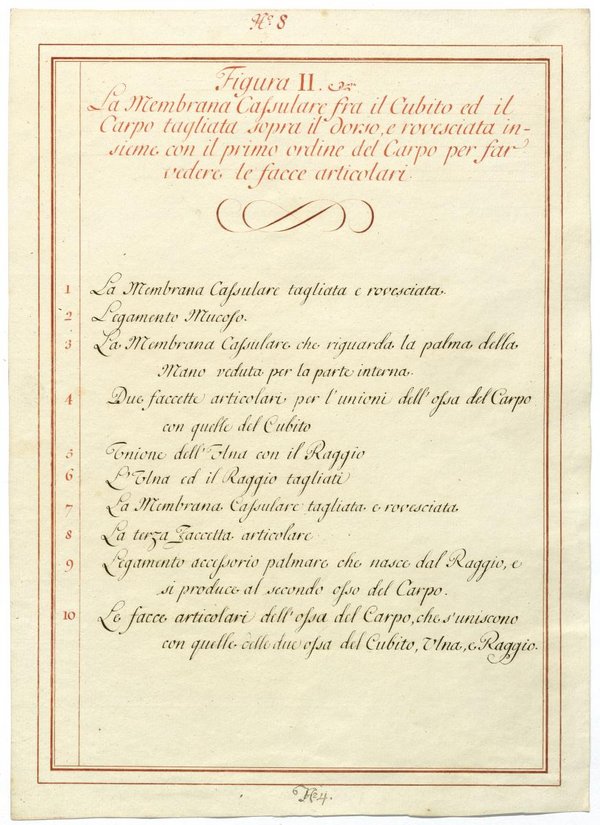 No. 8
Figura II.
La Membrana Caſsulare fra il Cubito ed il
Carpo tagliata sopra il dorso, e rovesciata in-
sieme con il primo ordine del Carpo per far
vedere le facce articolari.
1 La Membrana Caſsulare tagliata e rovesciata.
2 Legamento Mucoſo.
3 La Membrana Caſsulare che riguarda la palma della
Mano veduta per la parte interna.
4 Due faccette articolari per l'unioni dell'oſsa del Carpo
con quelle del Cubito
5 Unione dell'Ulna con il Raggio
6 L'Ulna ed il Raggio tagliati
7 La Membrana Caſsulare tagliata e rovesciata
8 La terza Faccetta articolare
9 Legamento acceſsorio palmare che nasce dal Raggio, e
si produce al secondo oſso del Carpo.
10 Le facce articolari dell'oſsa del Carpo, che s'uniscono
con quelle delle due oſsa del Cubito, Ulna, e Raggio.
No. 4.